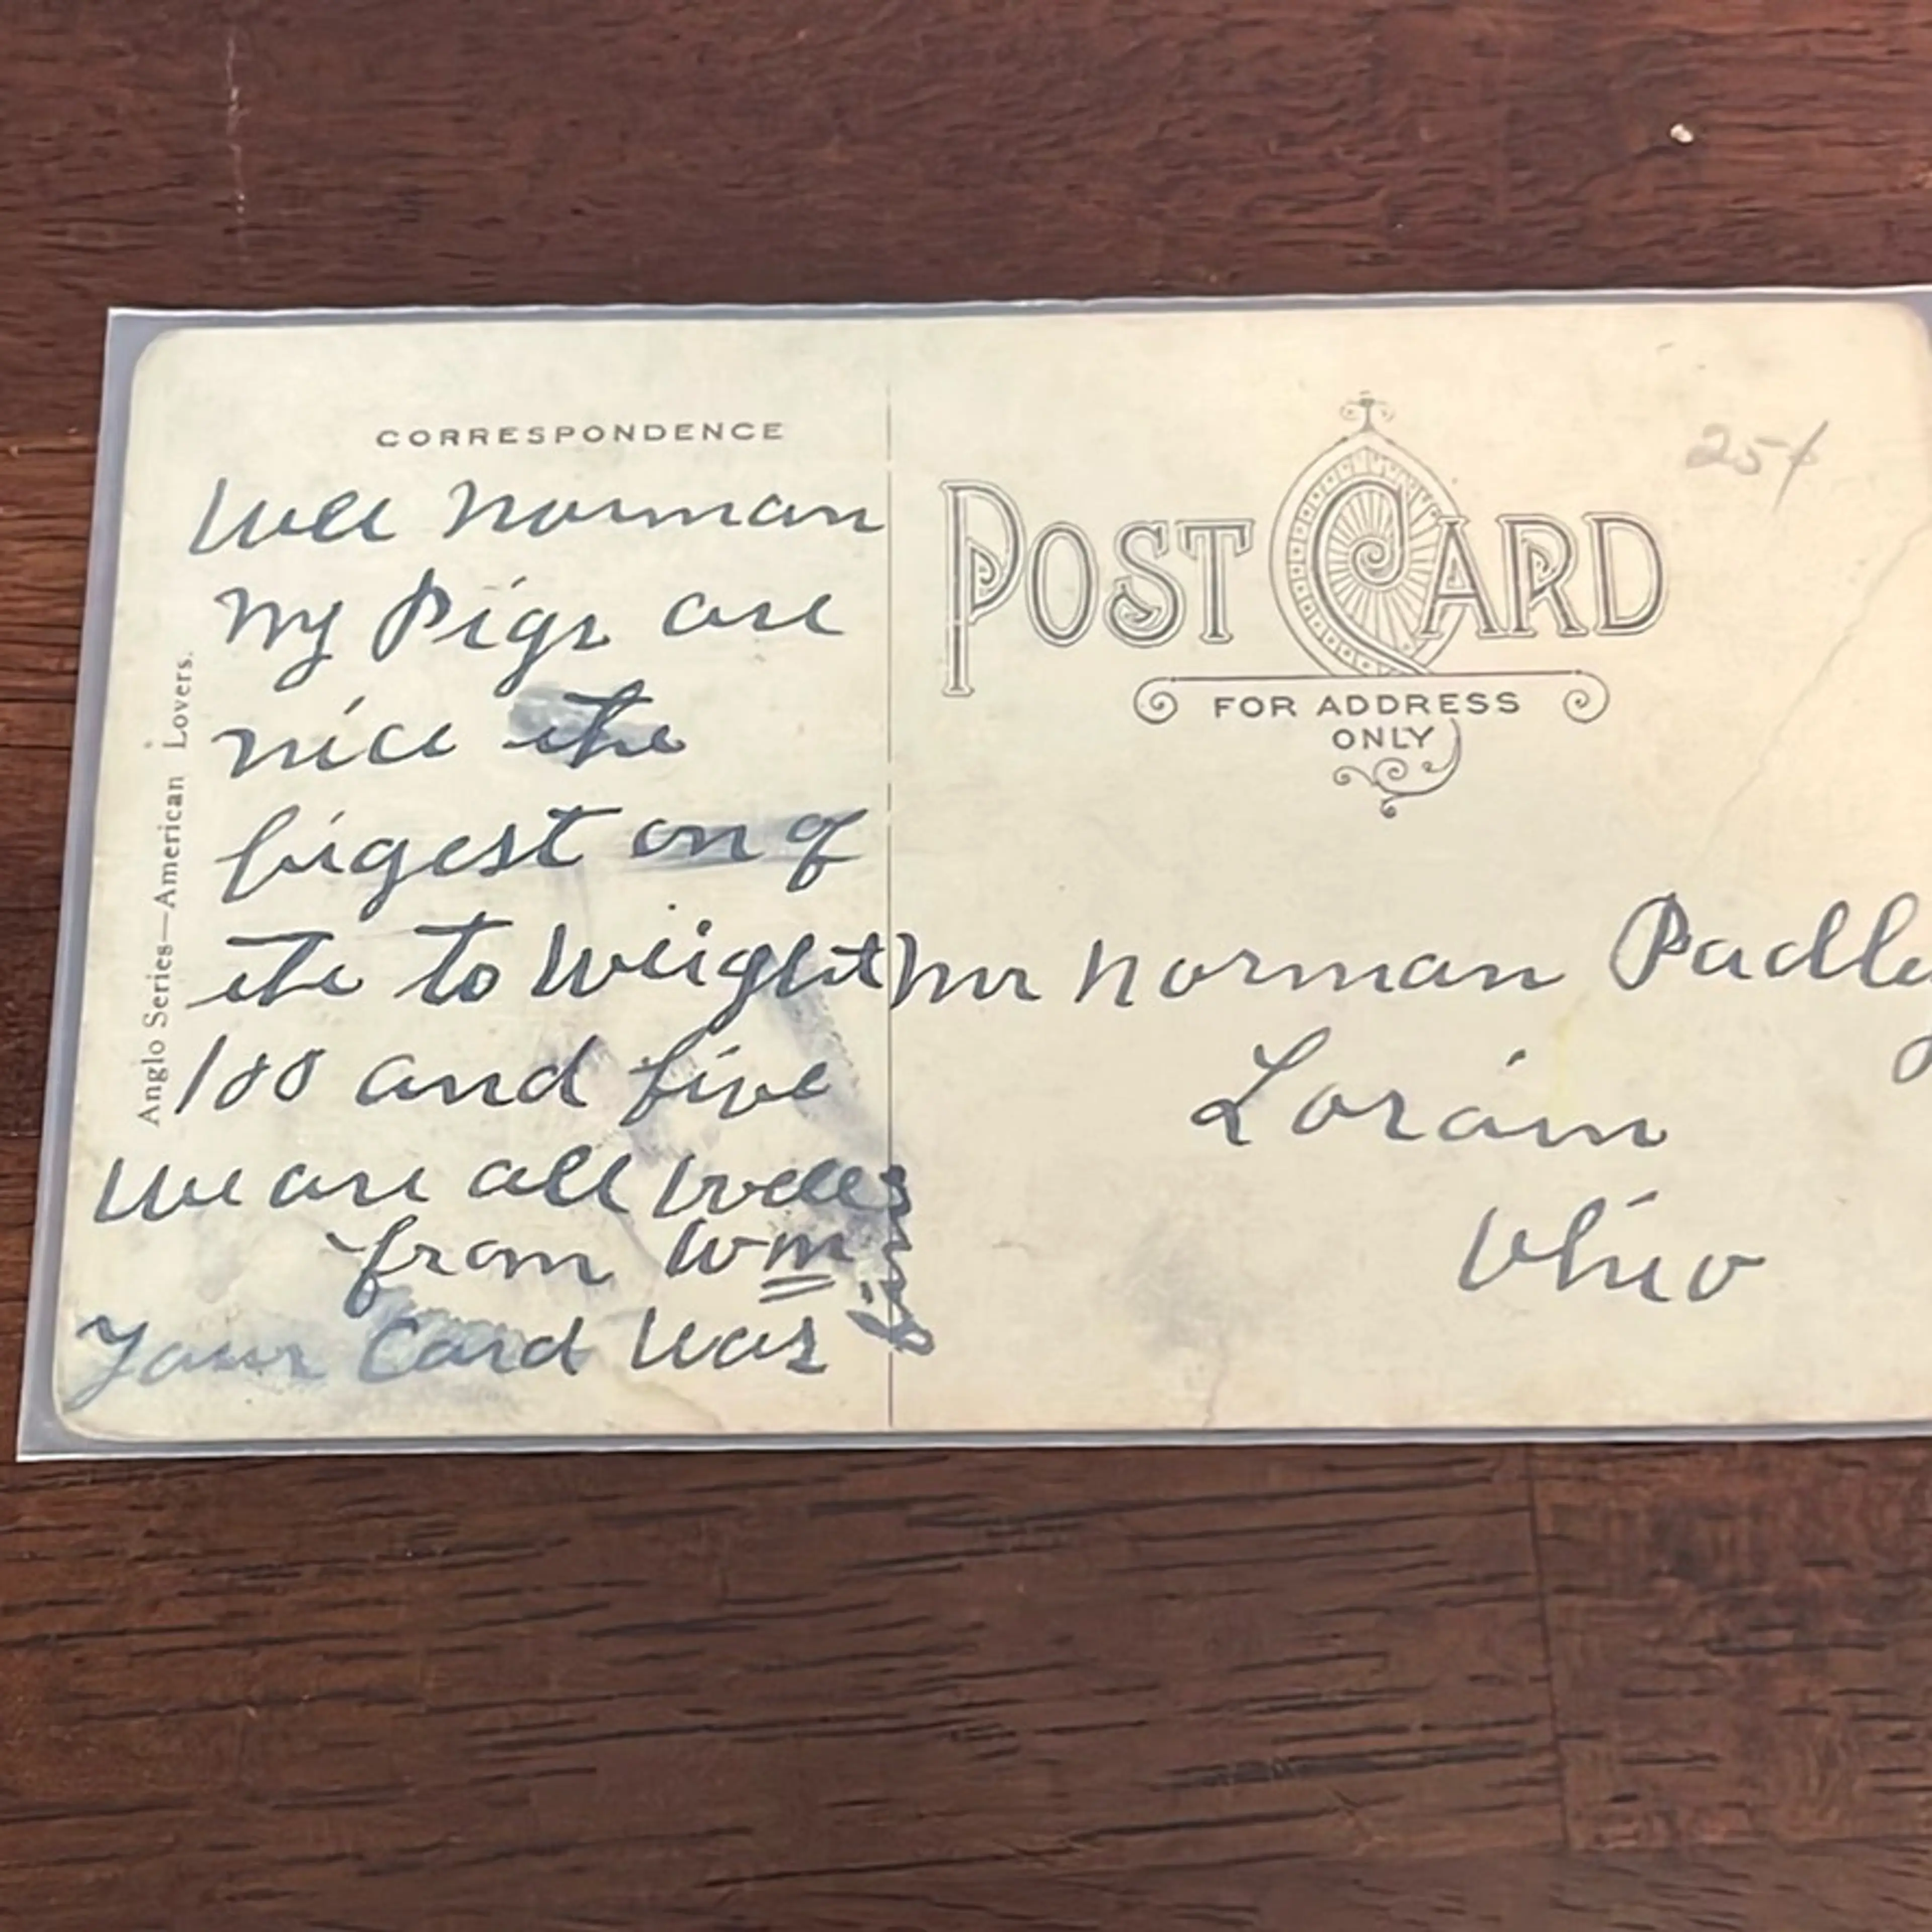 CORRESPONDENCE
Well Norman
My Pigs are
nice the
bigest on of
the to Weight
100 and five
We are all well
from Wm
Your Card Was
Anglo Series—American Lovers.
POST CARD
FOR ADDRESS
ONLY
25¢
Mr Norman
Lorain
Ohio